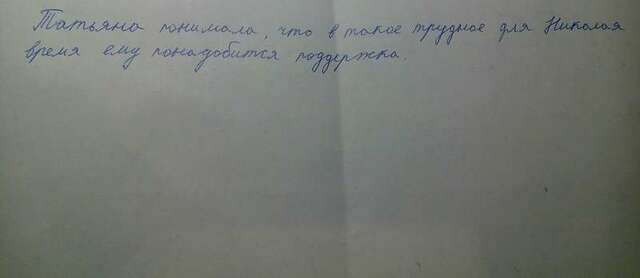 Татьяна понимала, что в такое трудное для Николая
время ему понадобится поддержка.